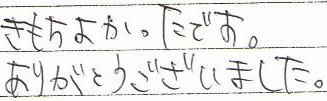 きもちよかったです。
ありがとうございました。